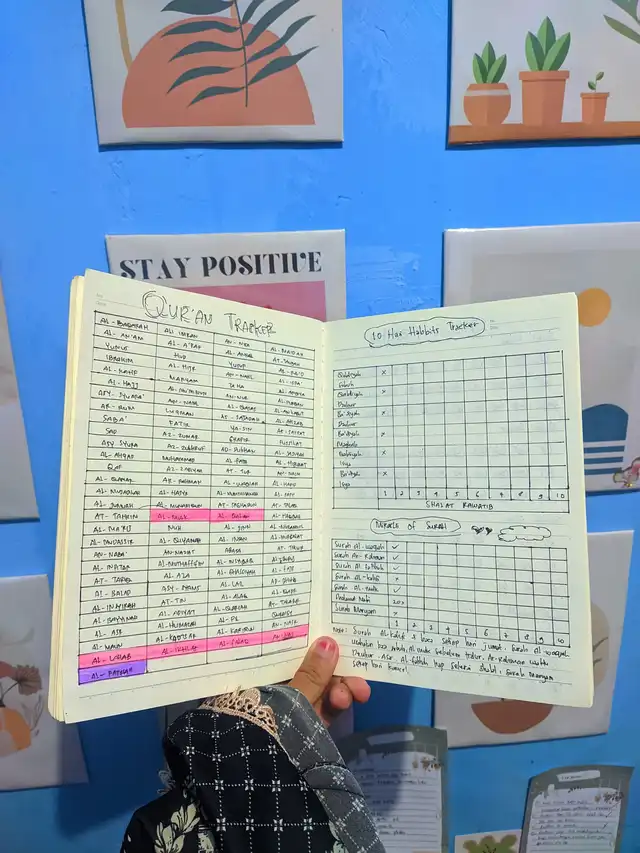 STAY POSITIVE
QUR'AN TRACKER
AL-BAQARAH ALI IMRAN AN-NISA AL-MAIDAH
AL-AN'AM AL-A'RAF AL-ANFAL AT-TAUBAH
YUNUS HUD YUSUF AR-RA'D
IBRAHIM AL-HIJR AN-NAHL AL-ISRA
AL-KAHFI MARYAM TAHA AL-ANBIYA
AL-HAJJ AL-MU'MINUN AN-NUR AL-FURQAN
ASY-SYUARA' AN-NAML AL-QASAS AL-ANKABUT
AR-RUM LUQMAN AS-SAJADAH AL-AHZAB
SABA' FATIR YA-SIN AS-SAFFAT
SAD AZ-ZUMAR GHAFIR FUSSILAT
ASY SYURA AZ-ZUKHRUF AD-DUKHAN AL-JASIYAH
AL-AHQAF MUHAMMAD AL-FATH AL-HUJURAT
QAF AZ-ZARIYAH AT-TUR AN-NAJM
AL-QAMAR AR-RAHMAN AL-WAQIAH AL-HADID
AL-MUJADALAH AL-HASYR AL-MUMTAHANAH AS-SAFF
AL-JUMUAH AL-MUNAFIQUN AT-TAGHABUN AT-TALAQ
AT-TAHRIM AL-MULK AL-QALAM AL-HAQQAH
AL-MA'RIJ NUH AL-JINN AL-MUZAMMIL
AL-MUDASIR AL-QIYAMAH AL-INSAN AL-MURSALAT
AN-NABA' AN-NAZIAT ABASA AT-TAKWIR
AL-INFITAR AL-MUTHAFFIFIN AL-INSIQAQ AL-BURUJ
AT-TARIQ AL-ALA AL-GHASIYAH AL-FAJR
AL-BALAD ASY-SYAMS AL-LAIL AD-DHUHA
AL-INSYIRAH AT-TIN AL-ALAQ AL-QADR
AL-BAYYINAH AL-ADIYAT AL-QARIAH AT-TAKASUR
AL-ASR AL-HUMAZAH AL-FIL QURAISY
AL-MAUN AL-KAUTSAR AL-KAFIRUN AN-NASR
AL-LAHAB AL-IKHLAS AL-FALAQ AN-NAS
AL-FATIHAH
10 Hari Habbits Tracker
Qabliyah x
Subuh
Qabliyah x
Dzuhur
Ba'diyah x
Dzuhur
Ba'diyah x
Maghrib
Qabliyah x
Isya
Ba'diyah x
Isya
1 2 3 4 5 6 7 8 9 10
SHALAT RAWATIB
MIRACLE OF SURAH
Surah Al-waqiah ✓
Surah Ar-Rahman ✓
Surah Al-Fatihah ✓
Surah Al-kahfi x
Surah Al-Mulk ✓
Sholawat Nabi 20x
Surah Maryam x
1 2 3 4 5 6 7 8 9 10
Note: Surah Al-kahfi di baca setiap hari jumat. Surah Al-waqiah
Ar-Rahman waktu
Dzuhur - Asr. Al-fatihah tiap selesai shalat. Surah Maryam
setiap hari kamis.